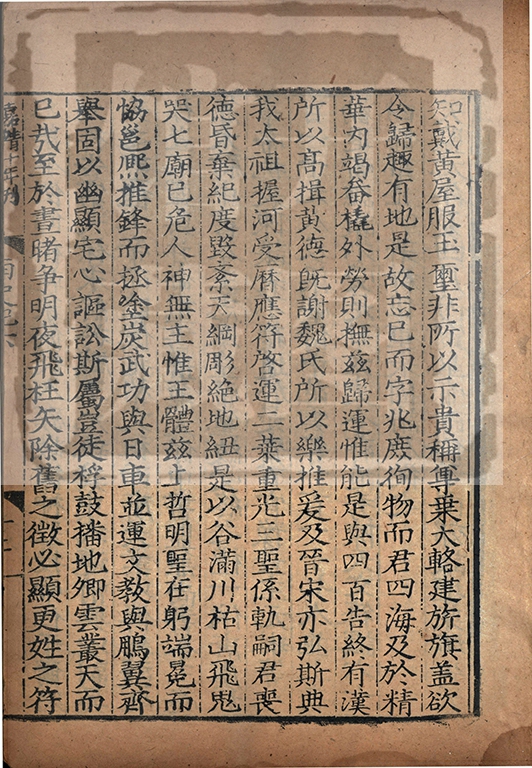 知戴黄屋服玉璽非所以示貴稱尊乗大輅建旂旗盖欲
令歸趣有地是故忘巳而字兆庶徇物而君四海及於精
華内竭畚橇外勞則撫兹歸運惟能是與四百告終有漢
所以高揖黄德旣謝魏氏所以樂推爰及晉宋亦弘斯典
我太祖握河受曆應符啓運二葉重光三聖係軌嗣君喪
德昏棄紀度毀紊天綱彫絶地紐是以谷滿川枯山飛鬼
哭七廟巳危人神無主惟王體兹上哲明聖在躬端冕而
恊邕熈推鋒而拯塗炭武功與日車並運文教與鵬翼齊
舉固以幽顯宅心謳訟斯屬豈徒桴鼓播地卿雲叢天而
巳㢤至於晝睹争明夜飛枉矢除舊之徵必顯更姓之符
嘉靖十年刊